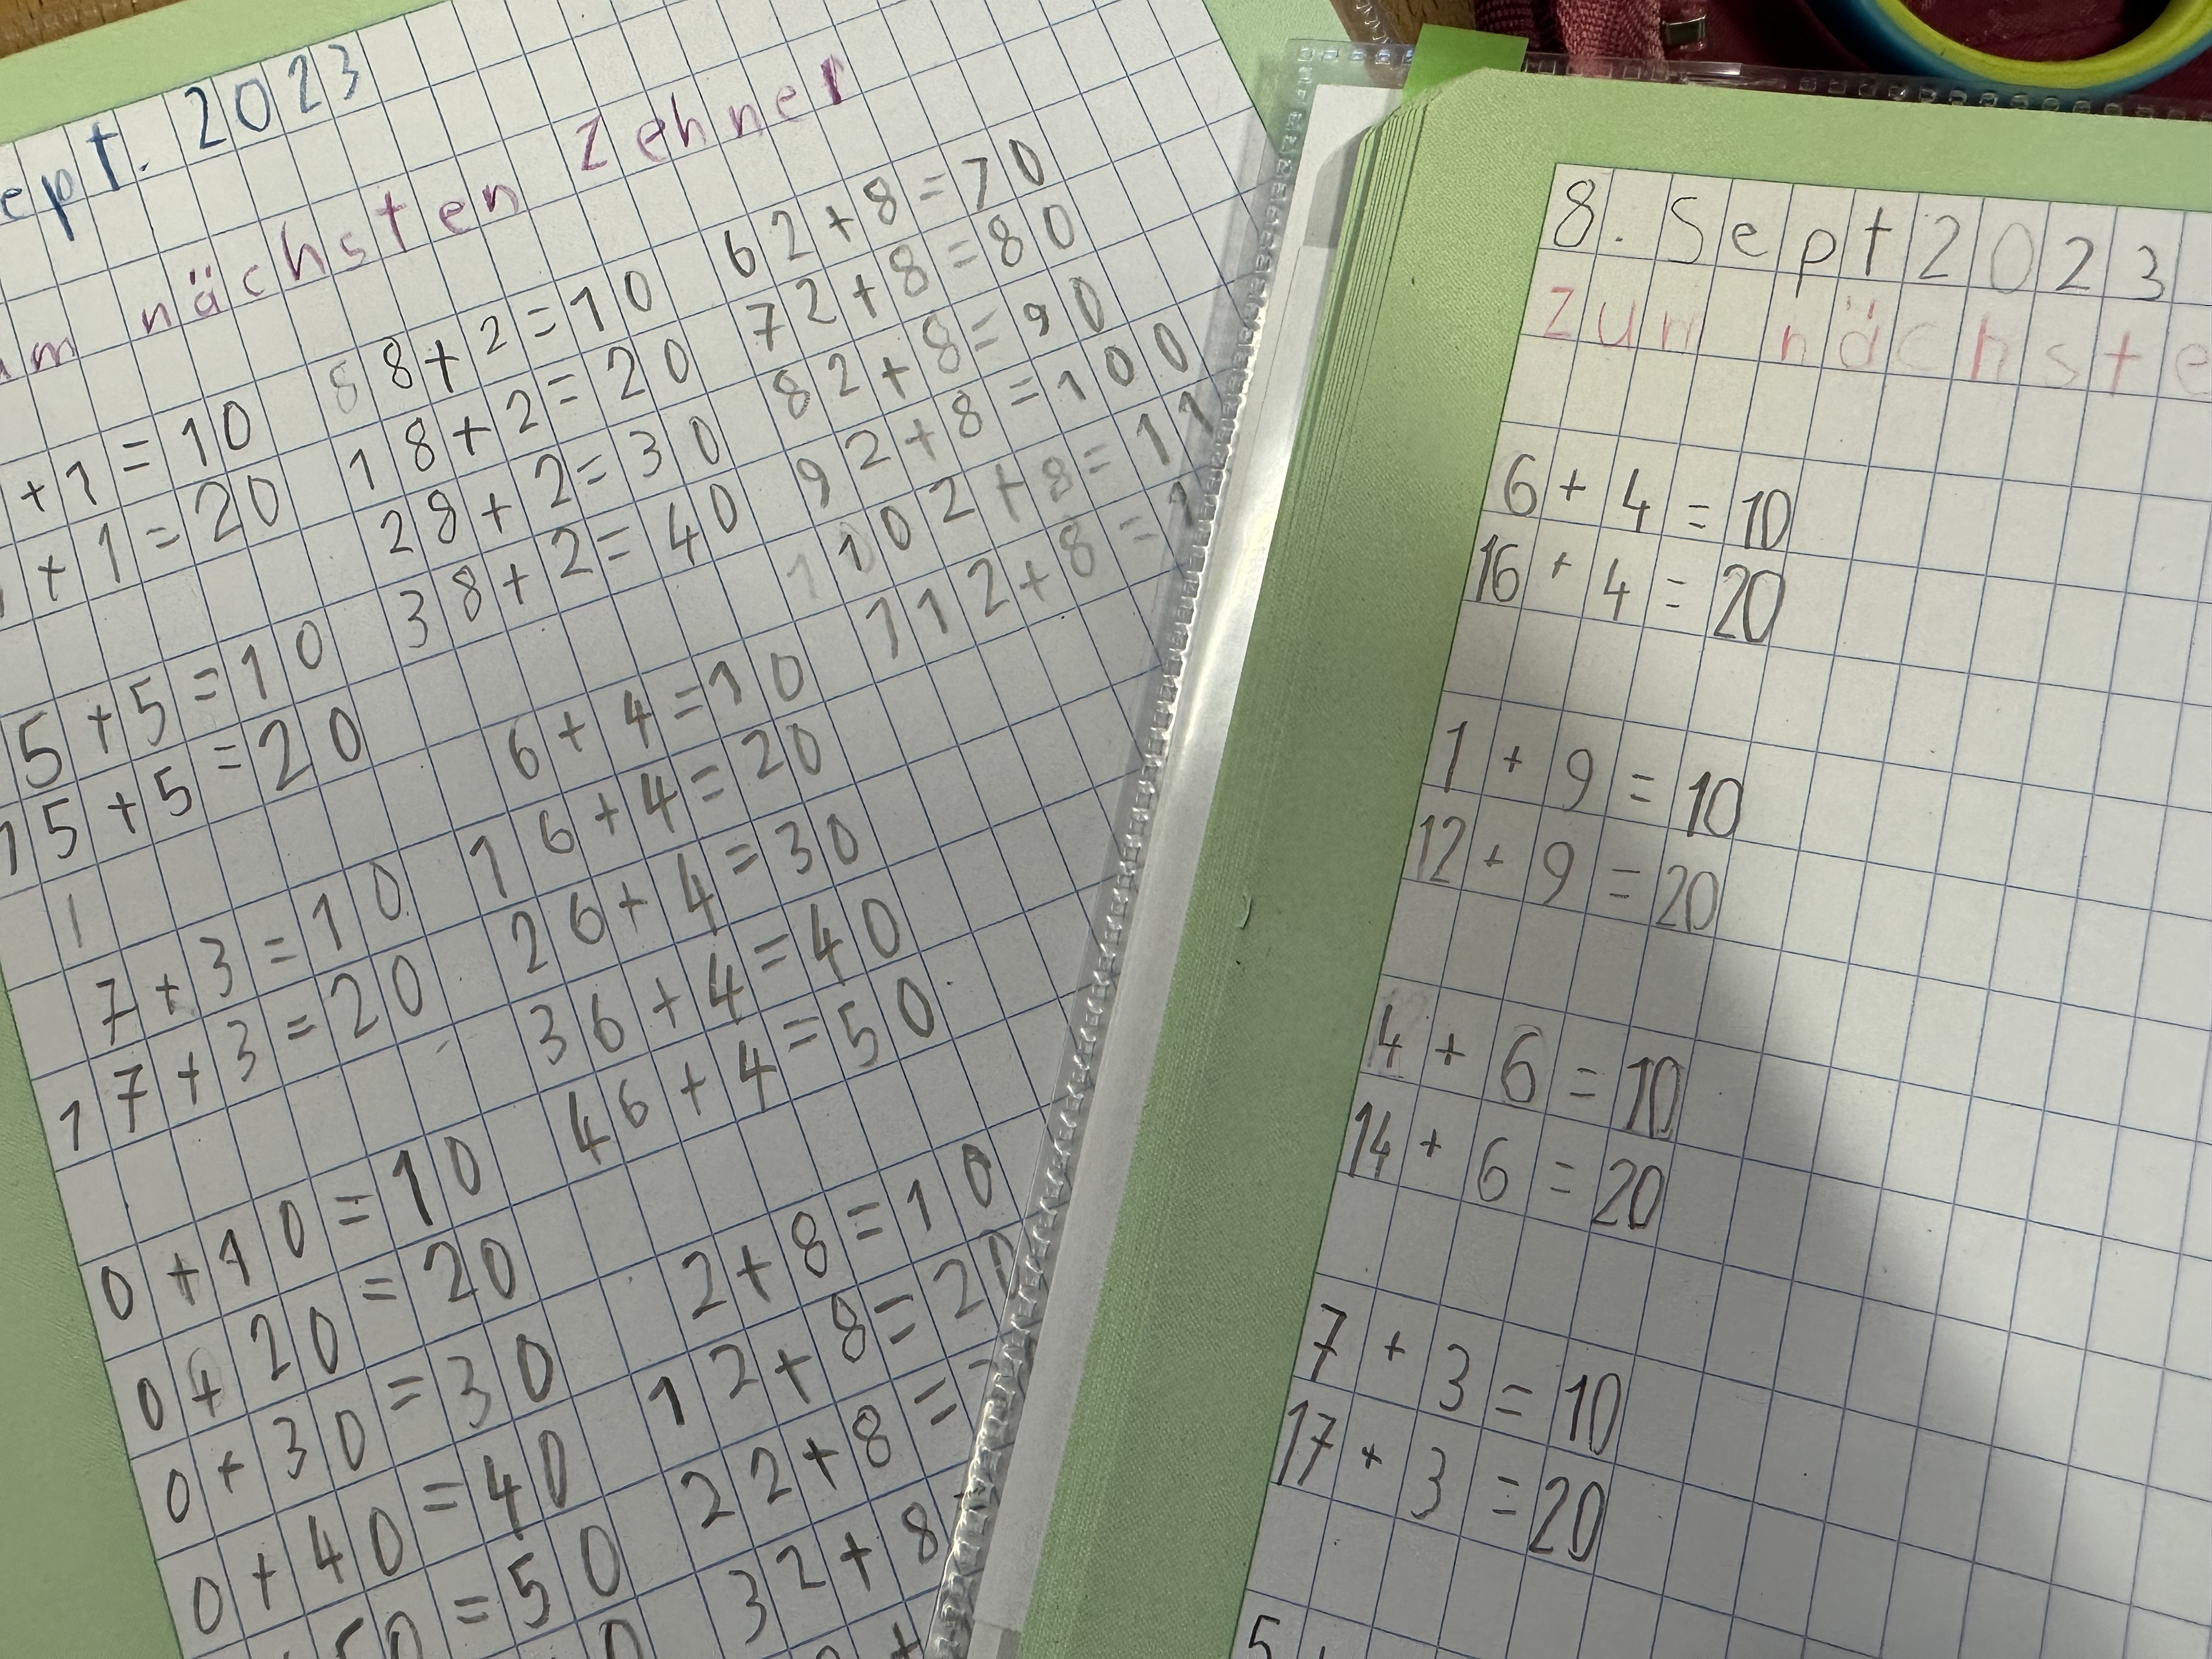 ept. 2023
um nächsten Zehner
+1=10
+1=20
5+5=10
15+5=20
1
7+3=10
17+3=20
0+10=10
0+20=20
0+30=30
0+40=40
50=50
8+2=10
18+2=20
28+2=30
38+2=40
6+4=10
16+4=20
26+4=30
36+4=40
46+4=50
2+8=10
12+8=20
22+8=
32+8
62+8=70
72+8=80
82+8=90
92+8=100
102+8=11
112+8=1
8. Sept 2023
zum nächste
6+4=10
16+4=20
1+9=10
12+9=20
4+6=10
14+6=20
7+3=10
17+3=20
5